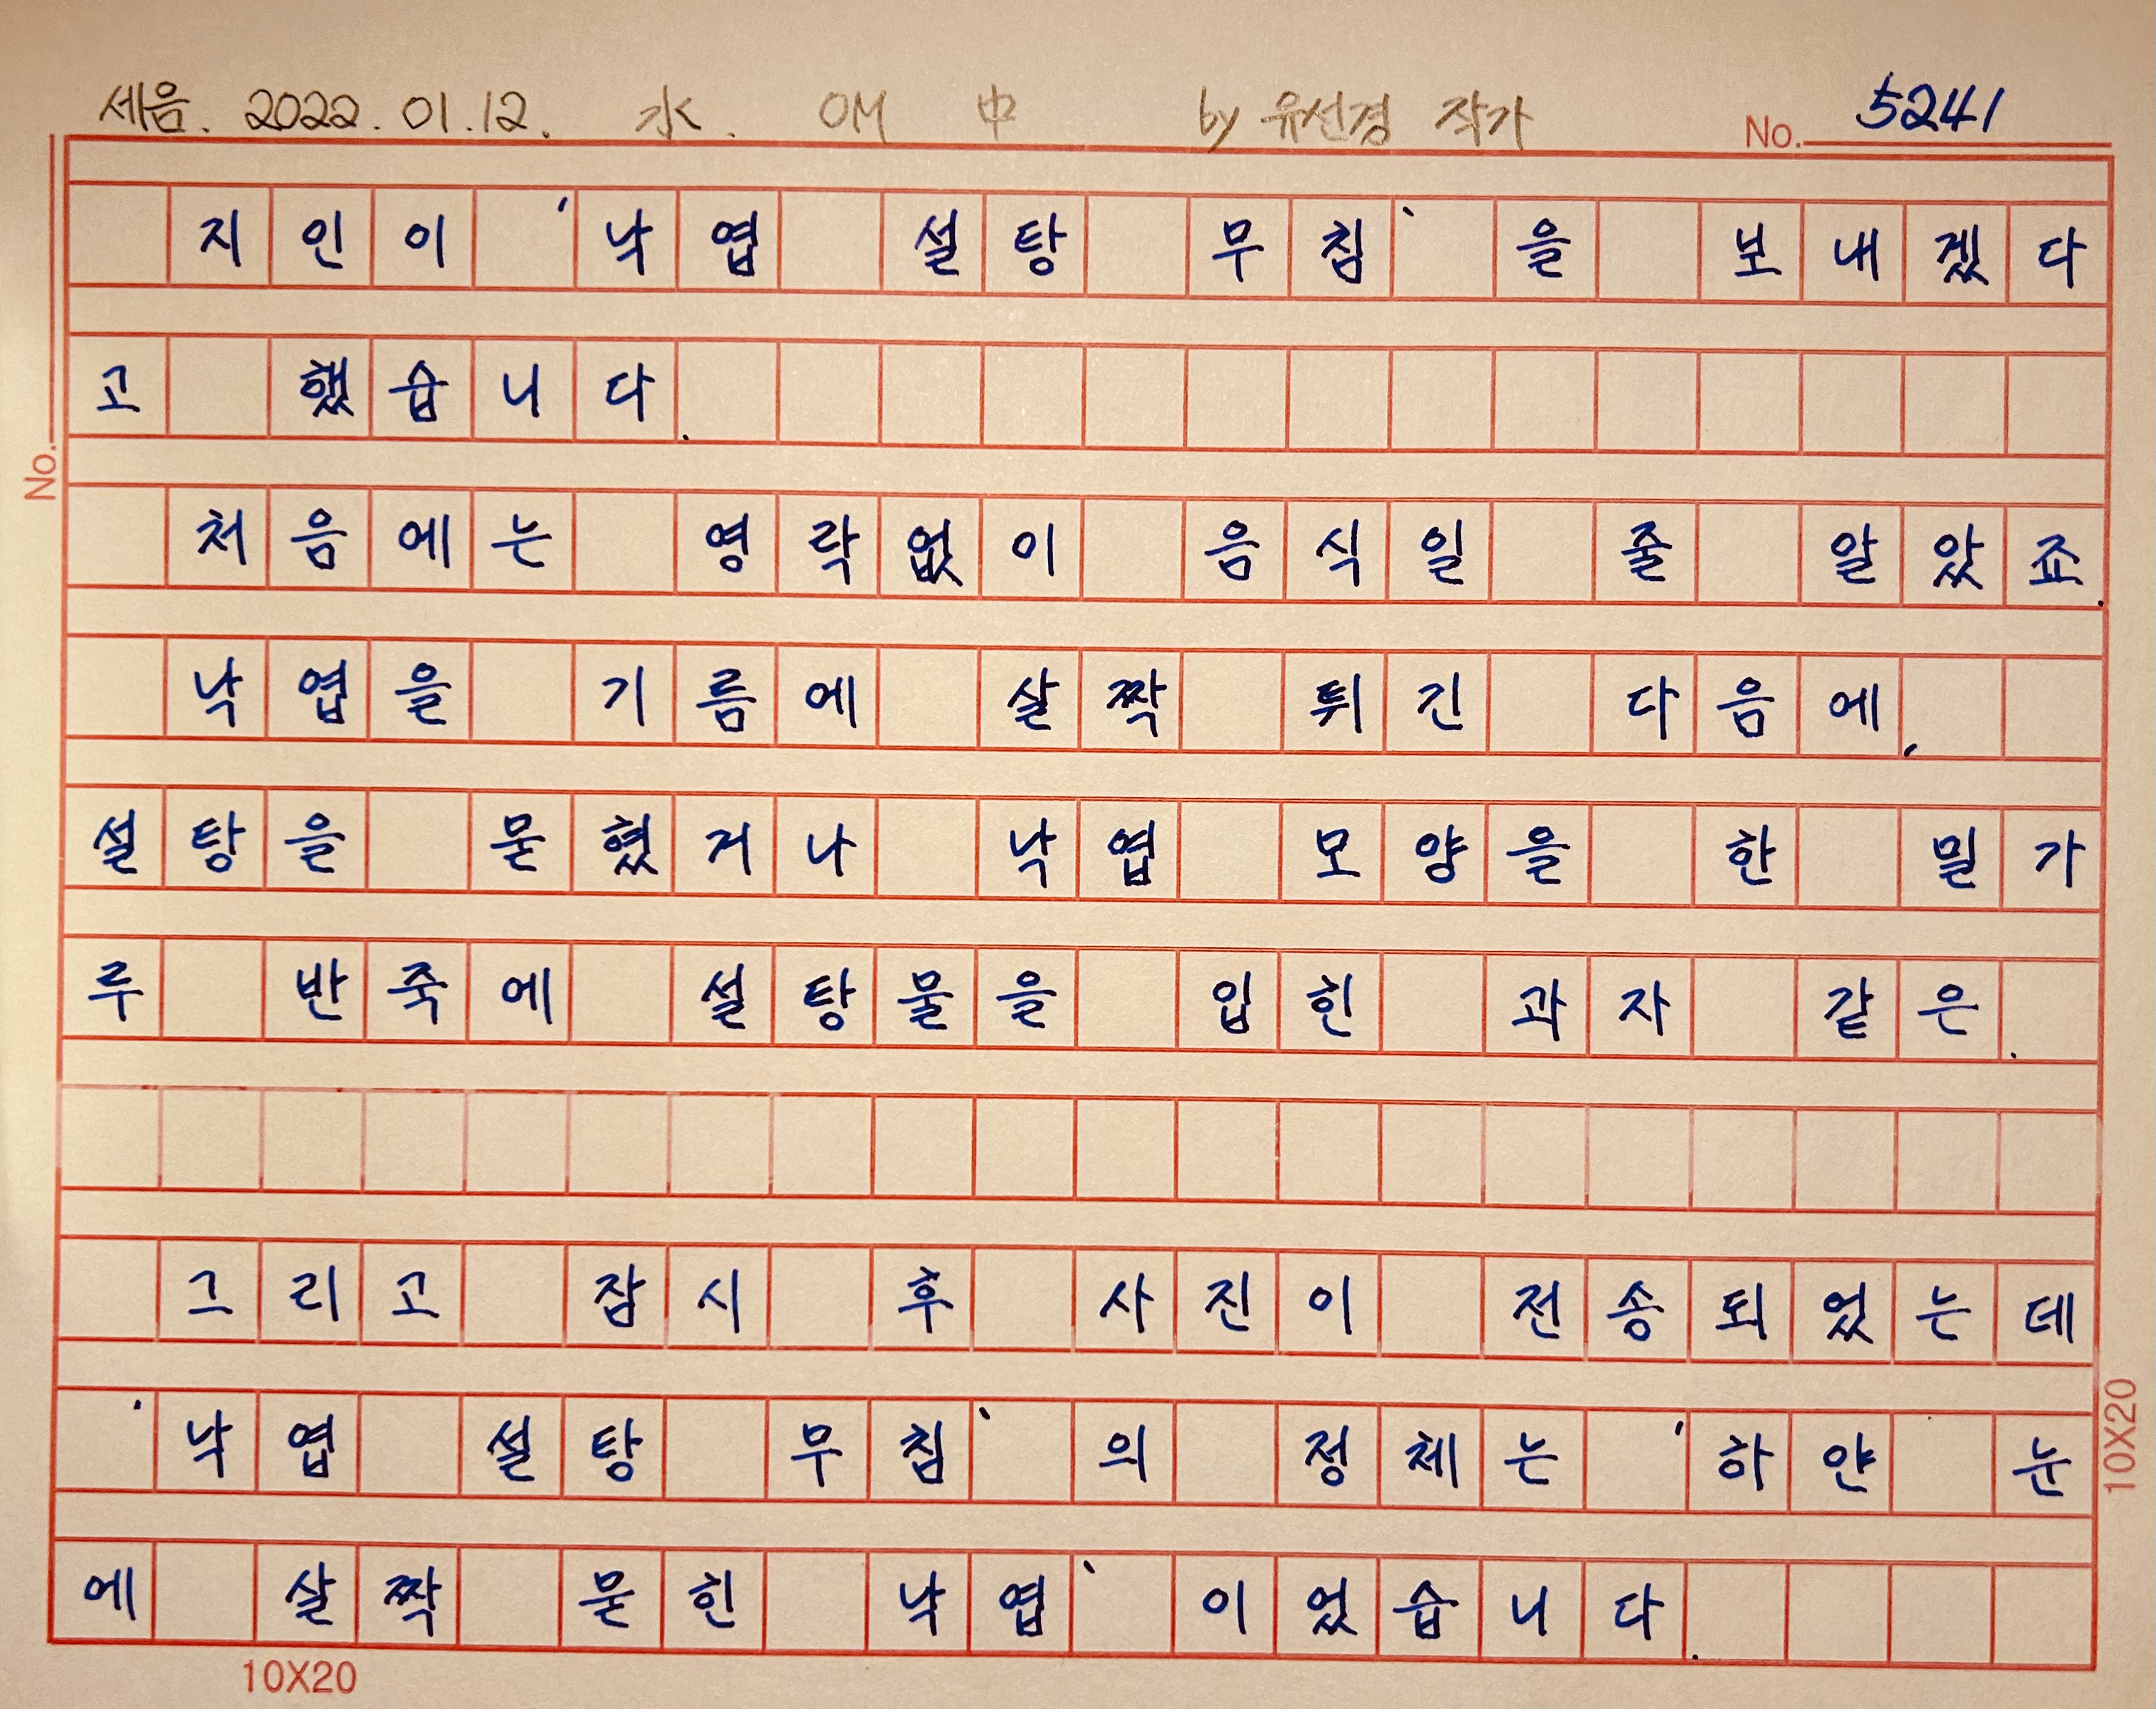 세음. 2022. 01. 12. 水. OM 中 by 유선경 작가 No. 5241
지인이 '낙엽 설탕 무침'을 보내겠다
고 했습니다.
No.
처음에는 영락없이 음식일 줄 알았죠.
낙엽을 기름에 살짝 튀긴 다음에,
설탕을 묻혔거나 낙엽 모양을 한 밀가
루 반죽에 설탕물을 입힌 과자 같은.
그리고 잠시 후 사진이 전송되었는데
'낙엽 설탕 무침'의 정체는 '하얀 눈
에 살짝 묻힌 낙엽'이었습니다.
10X20
10X20